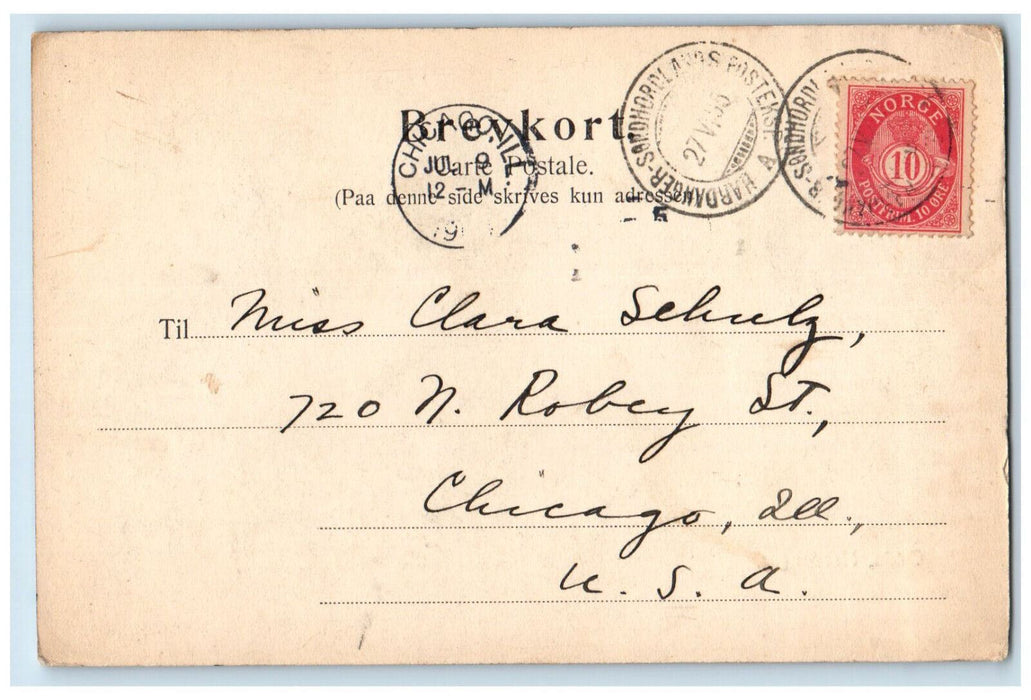 Brevkort.
Carte Postale.
(Paa denne side skrives kun adressen)
CHICAGO, ILL.
JUL 9
12 - M
19
HARDANGER-SØNDHORDLANDS POSTEKSP. A
27 VI
NORGE
10
POSTFRIM. 10 ØRE
5
Til Miss Clara Schulz,
720 N. Robey St.,
Chicago, Ill.,
U. S. A.